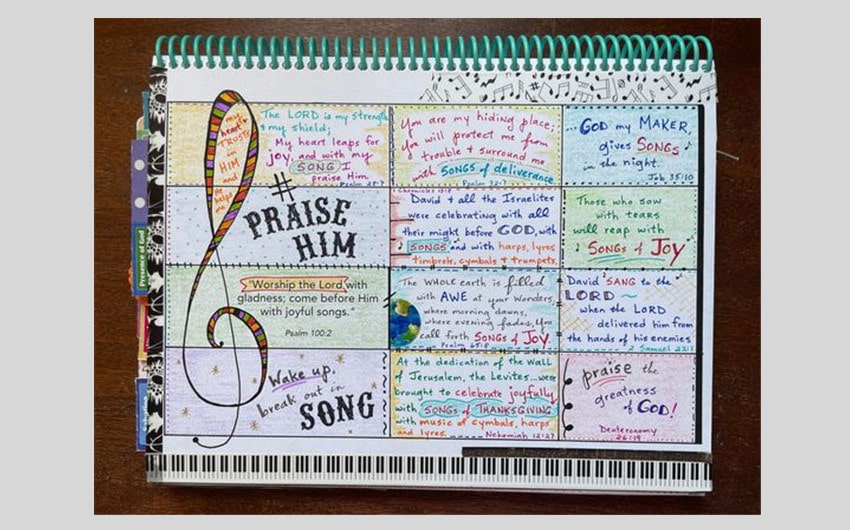 my
heart
TRUSTS
in
HIM
and
He
helps
me
The LORD is my strength
+ my shield;
My heart leaps for
joy, and with my
SONG I
praise Him.
Psalm 28:7
You are my hiding place;
You will protect me from
trouble + surround me
with SONGS of deliverance
Psalm 32:7
...GOD my MAKER,
gives SONGS
in the night.
Job 35:10
#
PRAISE
HIM
1 Chronicles 13:8
David + all the Israelites
were celebrating with all
their might before GOD, with
SONGS and with harps, lyres
timbrels, cymbals + trumpets.
Those who sow
with tears
will reap with
SONGS of JOY
"Worship the Lord with
gladness; come before Him
with joyful songs."
Psalm 100:2
The WHOLE earth is filled
with AWE at your wonders,
where morning dawns,
where evening fades, You
call forth SONGS of JOY.
Psalm 65:8
David SANG to the
LORD ~
when the LORD
delivered him from
the hands of his enemies
2 Samuel 22:1
Wake up,
break out in
SONG
At the dedication of the wall
of Jerusalem, the Levites...were
brought to celebrate joyfully
with SONGS of THANKSGIVING
with music of cymbals, harps
and lyres.
Nehemiah 12:27
praise the
greatness
of GOD!
Deuteronomy
Presence of God